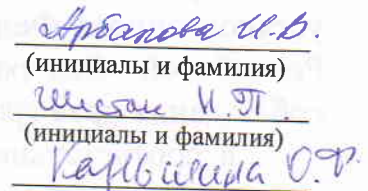 Арбапова И.В.
(инициалы и фамилия)
Шистан Н.П.
(инициалы и фамилия)
Каньшина О.Ф.